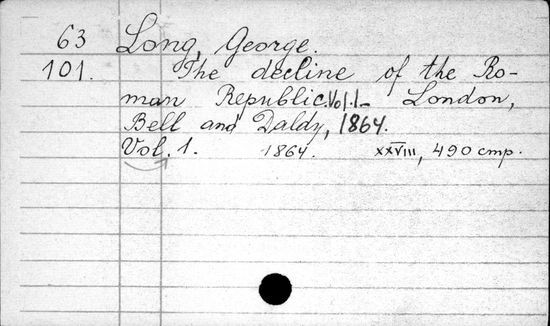 63 Long, George.
101. The decline of the Ro-
man Republic. Vol. 1- London,
Bell and Daldy, 1864.
Vol. 1. 1864. XXVIII, 490 стр.